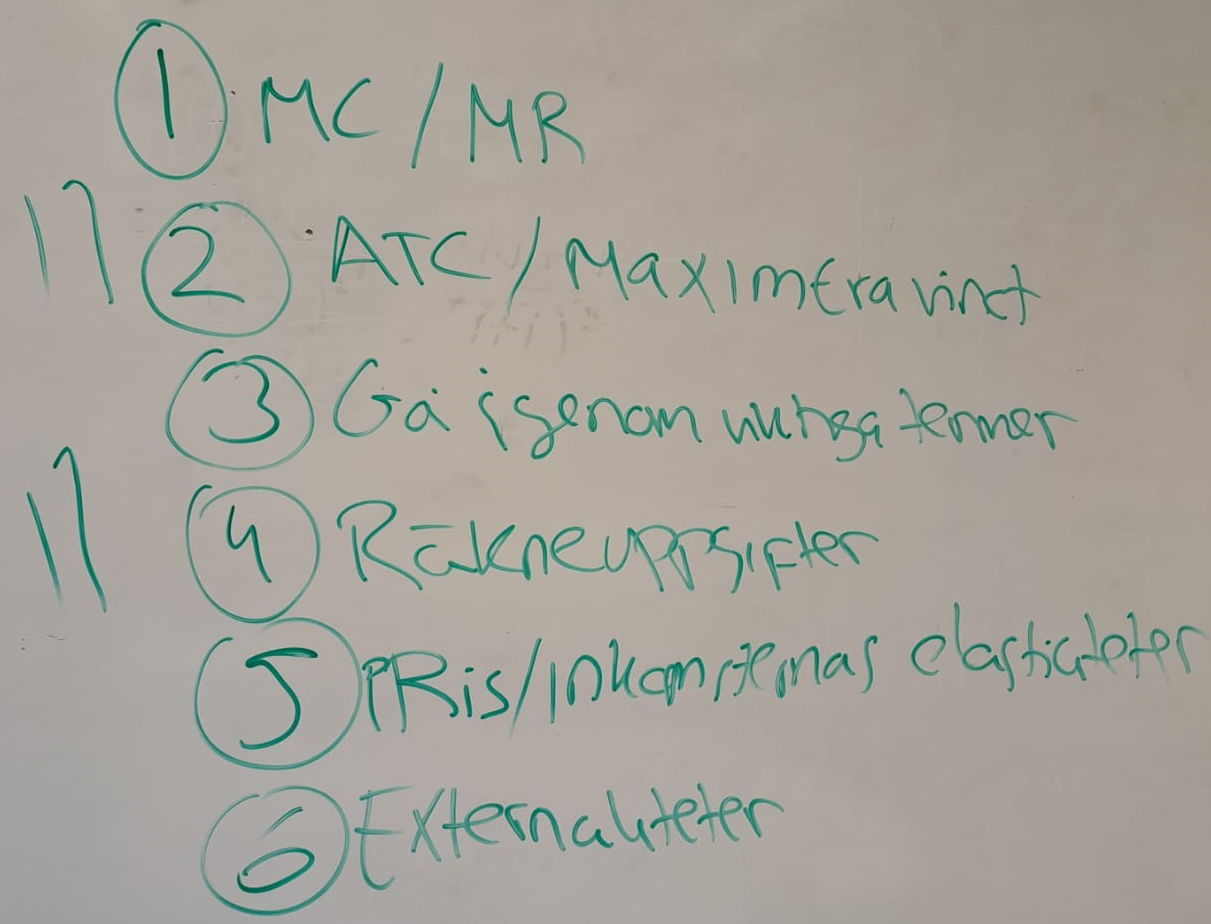 1 MC/MR
11 2 ATC/Maximera vinst
3 Gå igenom viktiga termer
11 4 Räkneuppgifter
5 PRis/inkomsternas elasticiteter
6 Externaliteter